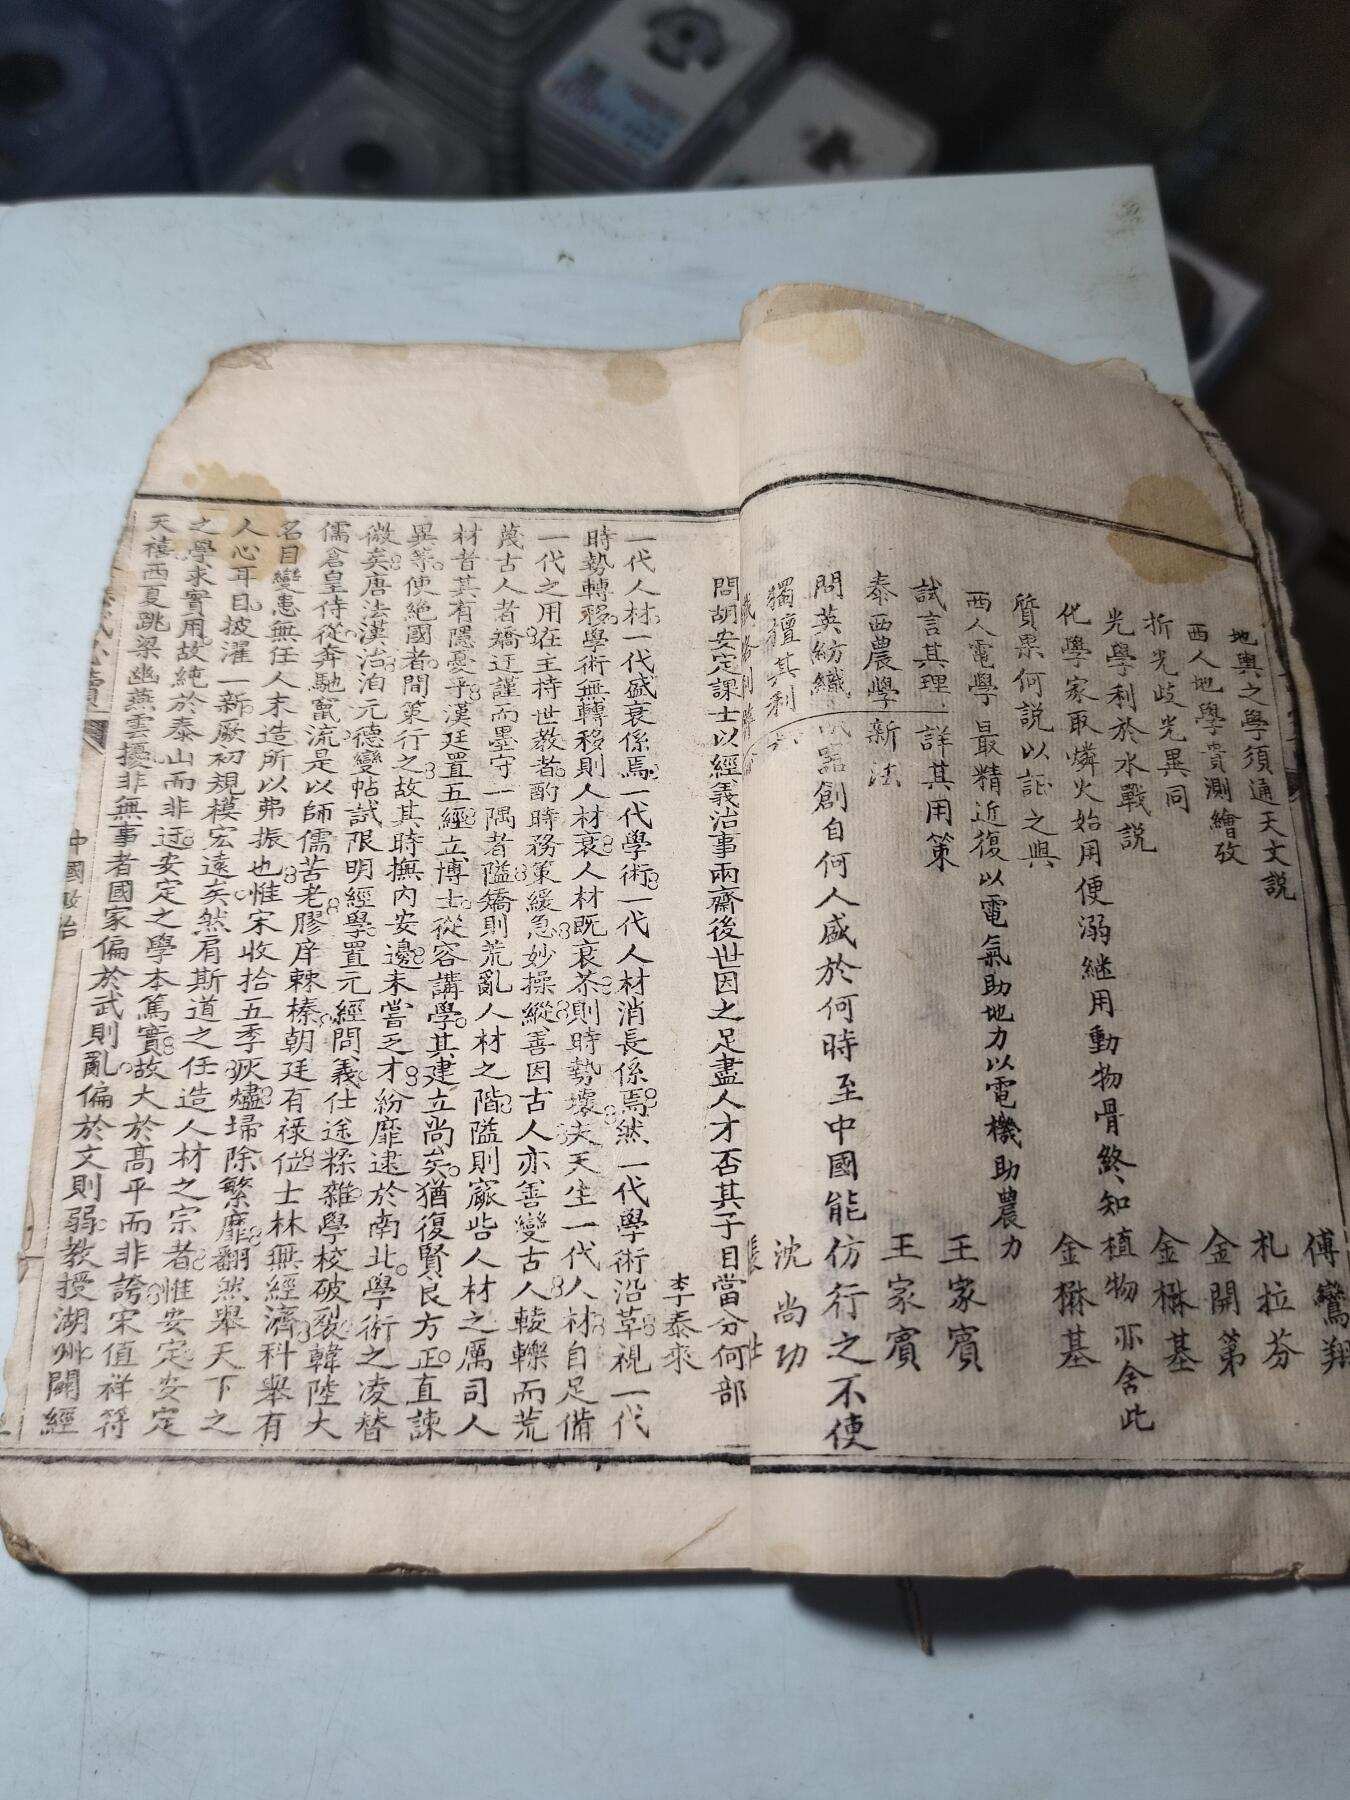 地輿之學須通天文説 傅鸞翔
西人地學貴測繪攷 札拉芬
折光歧光異同 金開第
光學利於水戰説 金楙基
化學家取燐火始用便溺継用動物骨終知植物亦舍此
質果何説以証之與 金楙基
西人電學最精近復以電氣助地力以電機助農力
試言其理詳其用策 王家賓
泰西農學新法 王家賓
問英紡織機器創自何人盛於何時至中國能仿行之不使
獨擅其利 沈尚功
問胡安定課士以經義治事兩齋後世因之足盡人才否其子目當分何部
李泰來
一代人材一代盛衰係焉一代學術一代人材消長係焉然一代學術沿革視一代
時勢轉移學術無轉移則人材衰人材既衰苶則時勢壞夫天生一代人材自足備
一代之用在主持世教者酌時務策緩急妙操縱善因古人亦善變古人輘轢而荒
蔑古人者矯迂謹而墨守一隅者隘矯則荒亂人材之階隘則寙呰人材之厲司人
材者其有隱憂乎漢廷置五經立博士從容講學其建立尚矣猶復賢良方正直諫
異等使絶國者間策行之故其時撫内安邊未嘗乏才紛靡逮於南北學術之凌替
微矣唐法漢治洎元德變帖試限明經學置元經問義仕途糅雜學校破裂韓陸大
儒倉皇侍從奔馳竄流是以師儒苦老膠庠棘榛朝廷有祿位士林無經濟科舉有
名目變患無任人末造所以弗振也惟宋收拾五季灰燼埽除繁靡翻然舉天下之
人心耳目披濯一新厥初規模宏遠矣然肩斯道之任造人材之宗者惟安定安定
之學求實用故純於泰山而非迂安定之學本篤實故大於高平而非誇宋值祥符
天禧西夏跳梁幽燕雲擾非無事者國家偏於武則亂偏於文則弱教授湖州闢經
中國政治